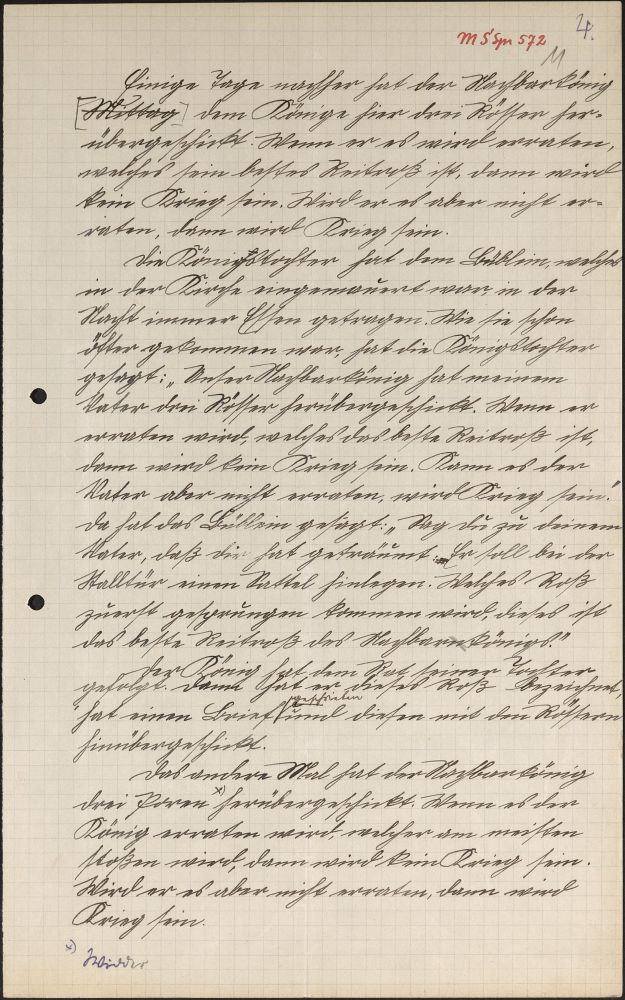 MS Spr 572
4.
11
Einige Tage nachher hat der Nachbarkönig
[Mittag] dem Könige hier drei Rösser her-
übergeschickt. Wenn er es wird erraten,
welches sein bestes Reitroß ist, dann wird
kein Krieg sein. Wird er es aber nicht er-
raten, dann wird Krieg sein.
Die Königstochter hat dem Büblein, welches
in der Kirche eingemauert war, in der
Nacht immer Essen getragen. Wie sie schon
öfter gekommen war, hat die Königstochter
gesagt: „Unser Nachbarkönig hat meinem
Vater drei Rösser herübergeschickt. Wenn er
erraten wird, welches das beste Reitroß ist,
dann wird kein Krieg sein. Kann es der
Vater aber nicht erraten, wird Krieg sein."
Da hat das Büblein gesagt: „Sag du zu deinem
Vater, daß dir hat geträumt: Er soll bei der
Stalltür einen Sattel hinlegen. Welches Roß
zuerst gesprungen kommen wird, dieses ist
das beste Reitroß des Nachbarnkönigs."
Der König hat dem Rat seiner Tochter
gefolgt. Dann hat er dieses Roß bezeichnet,
hat einen Brief geschrieben und diesen mit den Rössern
hinübergeschickt.
Das andere Mal hat der Nachbarkönig
drei Poren x) herübergeschickt. Wenn es der
König erraten wird, welcher am meisten
stoßen wird, dann wird kein Krieg sein.
Wird er es aber nicht erraten, dann wird
Krieg sein.
x) Widder